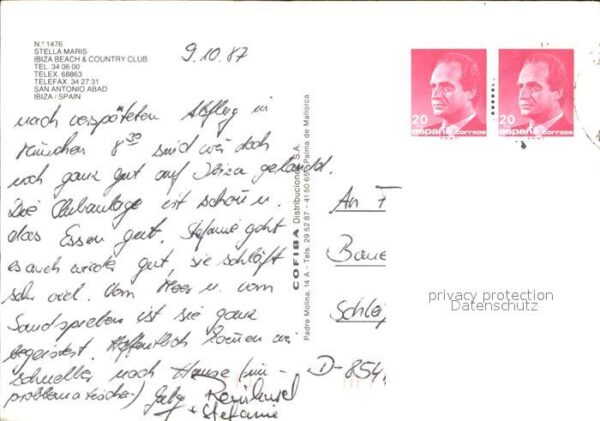 N.º 1476
STELLA MARIS
IBIZA BEACH & COUNTRY CLUB
TEL. 34 06 00
TELEX. 68863
TELEFAX. 34 27 31
SAN ANTONIO ABAD
IBIZA / SPAIN
9.10.87
nach verspäteten Abflug in
München 8 30 sind wir doch
noch ganz gut auf Ibiza gelandet.
Die Clubanlage ist schön u.
das Essen gut. Stefanie geht
es auch wieder gut, sie schläft
sehr viel. Vom Meer u. vom
Sandspielen ist sie ganz
begeistert. Hoffentlich können wir
schneller nach Hause (un-
problematischer)
Gaby
+ Stefanie
COFIBA Distribuciones, S.A.
Padre Molina, 14 A - Tels. 29 52 87 - 41 50 65 Palma de Mallorca
20
españa correos
20
españa correos
An F
Baue
Schleif
D-854
privacy protection
Datenschutz